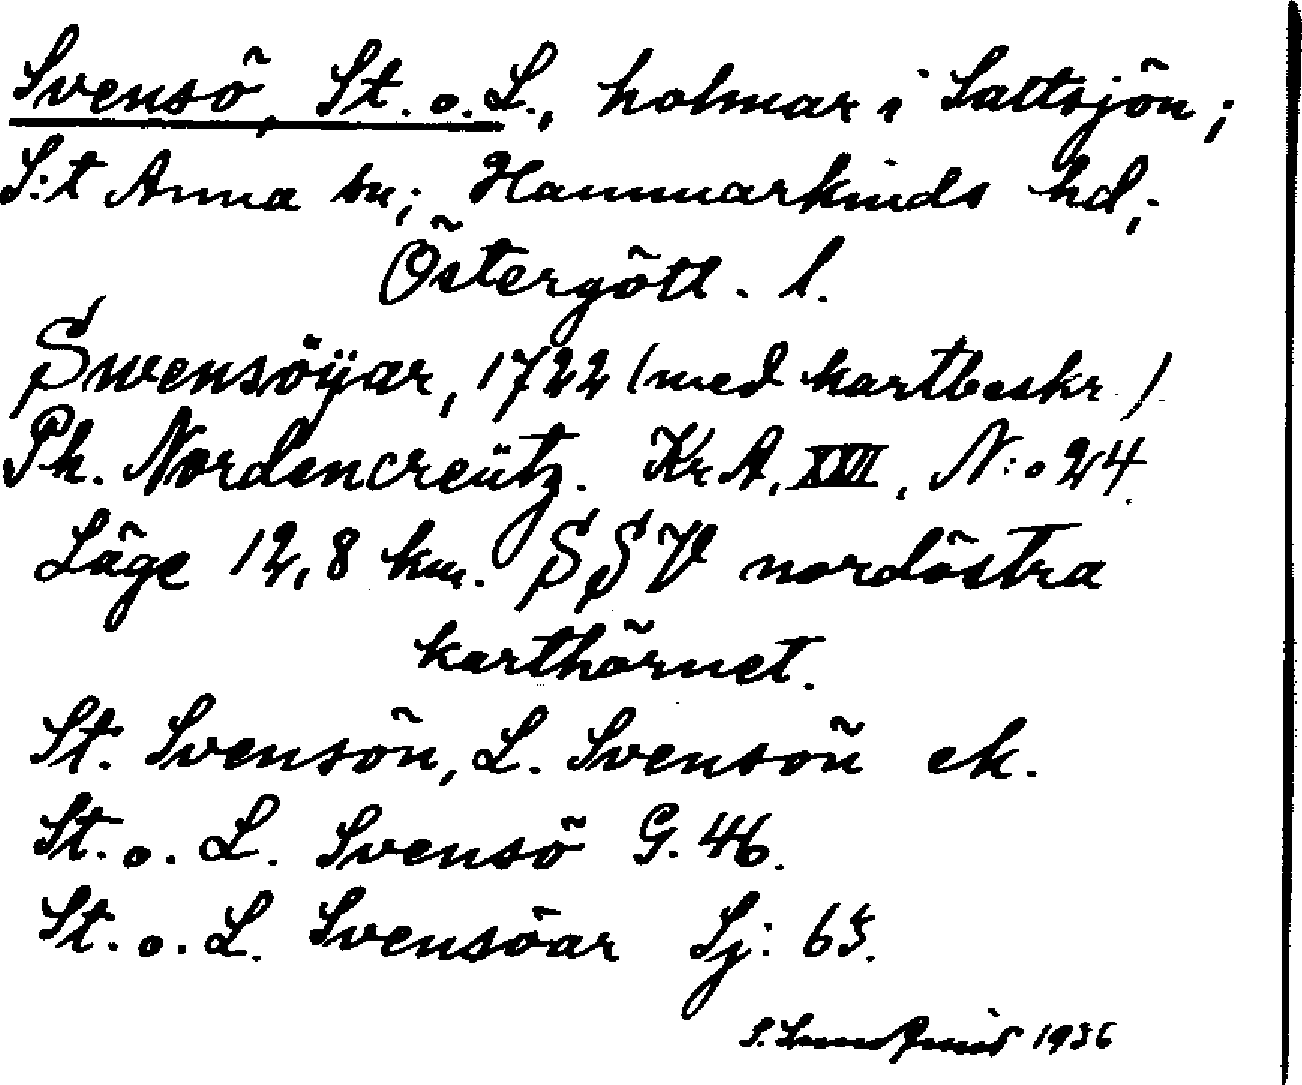 Svensö, St. o. L., holmar i Saltsjön;
S:t Anna sn; Hammarkinds hd;
Östergötl. l.
Swensöÿar, 1722 (med kartbeskr.)
Ph. Nordencreütz. Kr. A. XVII, N:o 24.
Läge 12,8 km. SSV nordöstra
karthörnet.
St. Svensön, L. Svensön ek.
St. o. L. Svensö G. 46.
St. o. L. Svensöar Sj: 65.
S. Lundqvist 1936